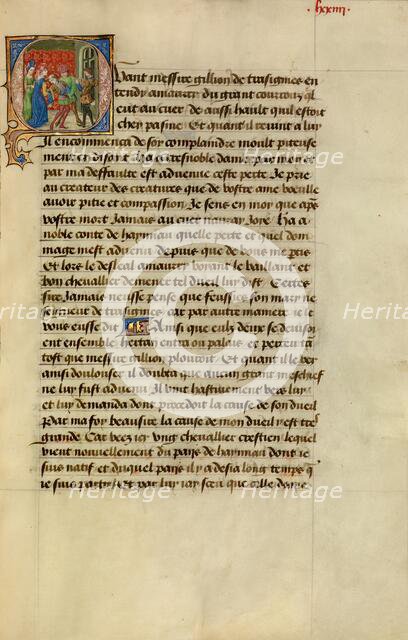 lxxiiii
Quant messire gillion de trasignies en
tendy amaury du grant courroux ql
eut au cuer de aussi hault quil estoit
chey pasme Et quant il revint a luy
Il encommenca de soy complaindre moult piteuse
ment en disant Ha a tresnoble dame par moy et
par ma deffaulte est advenue ceste perte Je prie
au createur des creatures que de vostre ame vueille
avoir pitie et compassion Je sens en moy que apres
vostre mort Jamais au cuer nauray Joye Ha a
noble conte de haynnau quelle perte et quel dom
mage mest advenu depuis que de vous me partis
Et lors le desleal amaury voiant le vaillant et
bon chevallier mener tel dueil luy dist
sire Jamais neusse pense que feussies son mary ne
seigneur de trasignies car par autre maniere le
vous eusse dit Ainsi que eulx deux se devisoi
ent ensemble hertan entra ou palais et perceu tan
tost que messire gillion plouroit Et quant il le vey
ainsi doulouser il doubta que aucun grant meschief
ne luy fust advenu Il vint hastivement vers luy
et luy demanda dont procedoit la cause de son dueil
Par ma foy beau sire la cause de mon dueil y est tres
grande Car veez icy ung chevallier crestien lequel
vient nouvellement du pays de haynnau dont ie
suis natif et duquel pays il y a desia long temps q
ie suis party Et par luy iay sceu que celle dame
Heritage
Heritage
Heritage
Heritage
Heritage
Heritage